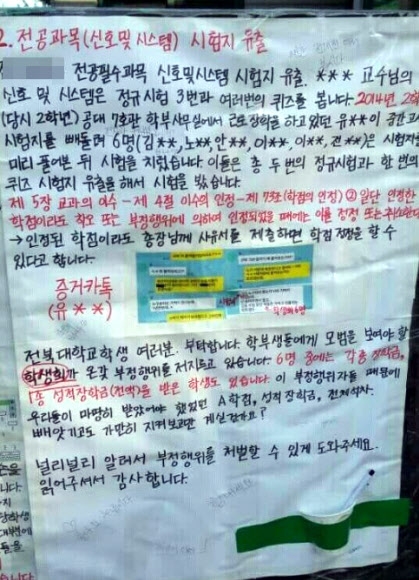 2. 전공과목(신호및 시스템) 시험지 유출
전공필수과목 신호및시스템 시험지 유출. *** 교수님의
신호 및 시스템은 정규시험 3번과 여러번의 퀴즈를 봅니다. 2014년 2학
(당시 2학년) 공대 7호관 학부사무실에서 근로장학을 하고있던 유**이 공강시
시험지를 빼돌려 6명(김**, 노**, 안**, 이**, 이**, 전**)은 시험지
미리 풀어본 뒤 시험을 치렀습니다. 이들은 총 두 번의 정규시험과 한 번의
퀴즈 시험지 유출를 해서 시험을 봤습니다.
제 5장 교과의 이수 - 제 4절 이수의 인정 - 제 73조(학점의 인정) ② 일단 인정한
학점이라도 착오 또는 부정행위에 의하여 인정되었을 때에는 이를 정정 또는 취소한다
→ 인정된 학점이라도 총장님께 사유서를 제출하면 학점 정정을 할 수
있다고 합니다.
증거카톡
(유**)
전북대학교학생 여러분. 부탁합니다. 학부생들에게 모범을 보여야 할
학생회가 온갖 부정행위를 저지르고 있습니다. 6명 중에는 각종 장학금,
1종 성적장학금(전액)을 받은 학생도 있습니다. 이 부정행위자들 때문에
우리들이 마땅히 받았어야 했었던 A학점, 성적장학금, 전체석차.
빼앗기고도 가만히 지켜보고만 계실건가요?
널리널리 알려서 부정행위를 처벌할 수 있게 도와주세요.
읽어주셔서 감사합니다.